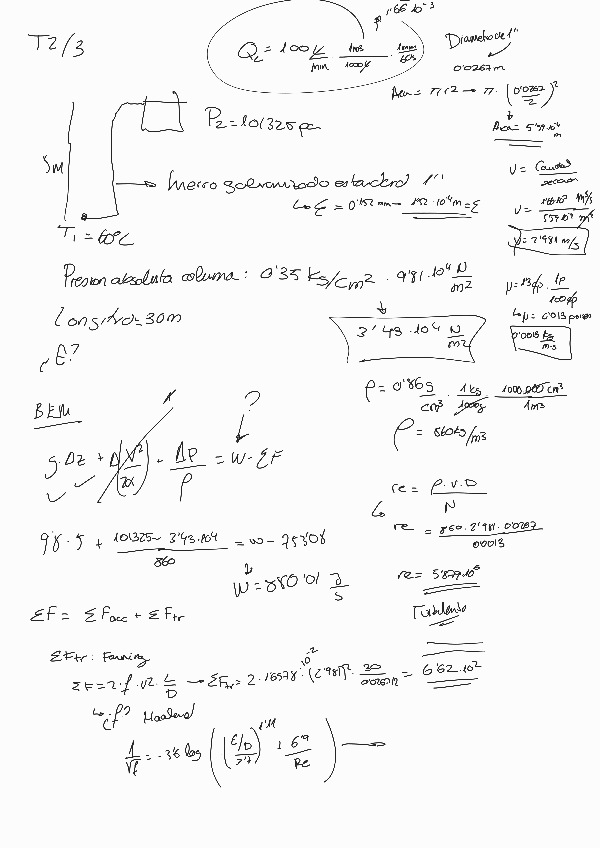 T2/3
Q_L = 100 l/min · 1m3/1000l · 1min/60s
1'66·10^-3
Diametro de 1"
0'0267m
Area = π r2 → π · (0'0267/2)^2
Area = 5'59·10^-4 m
P2 = 101325 pa
5m
Hierro galvanizado estandard 1"
↳ ε = 0'152 mm → 1'52·10^-4 m = ε
T1 = 60ºC
v = Caudal/seccion
v = 1'66·10^-3 m3/s / 5'59·10^-4 m2
v = 2'981 m/s
Presion absoluta columna: 0'35 kg/cm2 · 9'81·10^4 N/m2
3'43·10^4 N/m2
μ = 1'3cp · 1p/100cp
↳ μ = 0'013 poises
0'0013 kg/m·s
Longitud = 30m
¿E?
ρ = 0'86 g/cm3 · 1kg/1000g · 1000.000cm3/1m3
ρ = 860 kg/m3
BEM
?
g·Δz + Δ(v^2/2α) + Δp/ρ = W - ΣF
re = ρ·v·D/N
re = 860·2'981·0'0267/0'0013
9'8·5 + 101325 - 3'43·10^4/860 = W - 753'08
W = 880'01 J/s
Turbulento
ΣF = ΣFacc + ΣFtr
ΣFtr: Fanning
ΣF = 2·f·v2·L/D → ΣFtr = 2·1'6578·10^-2·(2'981)^2·30/0'0267 = 6'62·10^2
↳ ¿f? Haaland
1/√f = -3'6 log ((ε/D/3'7)^1'11 + 6'9/Re) →